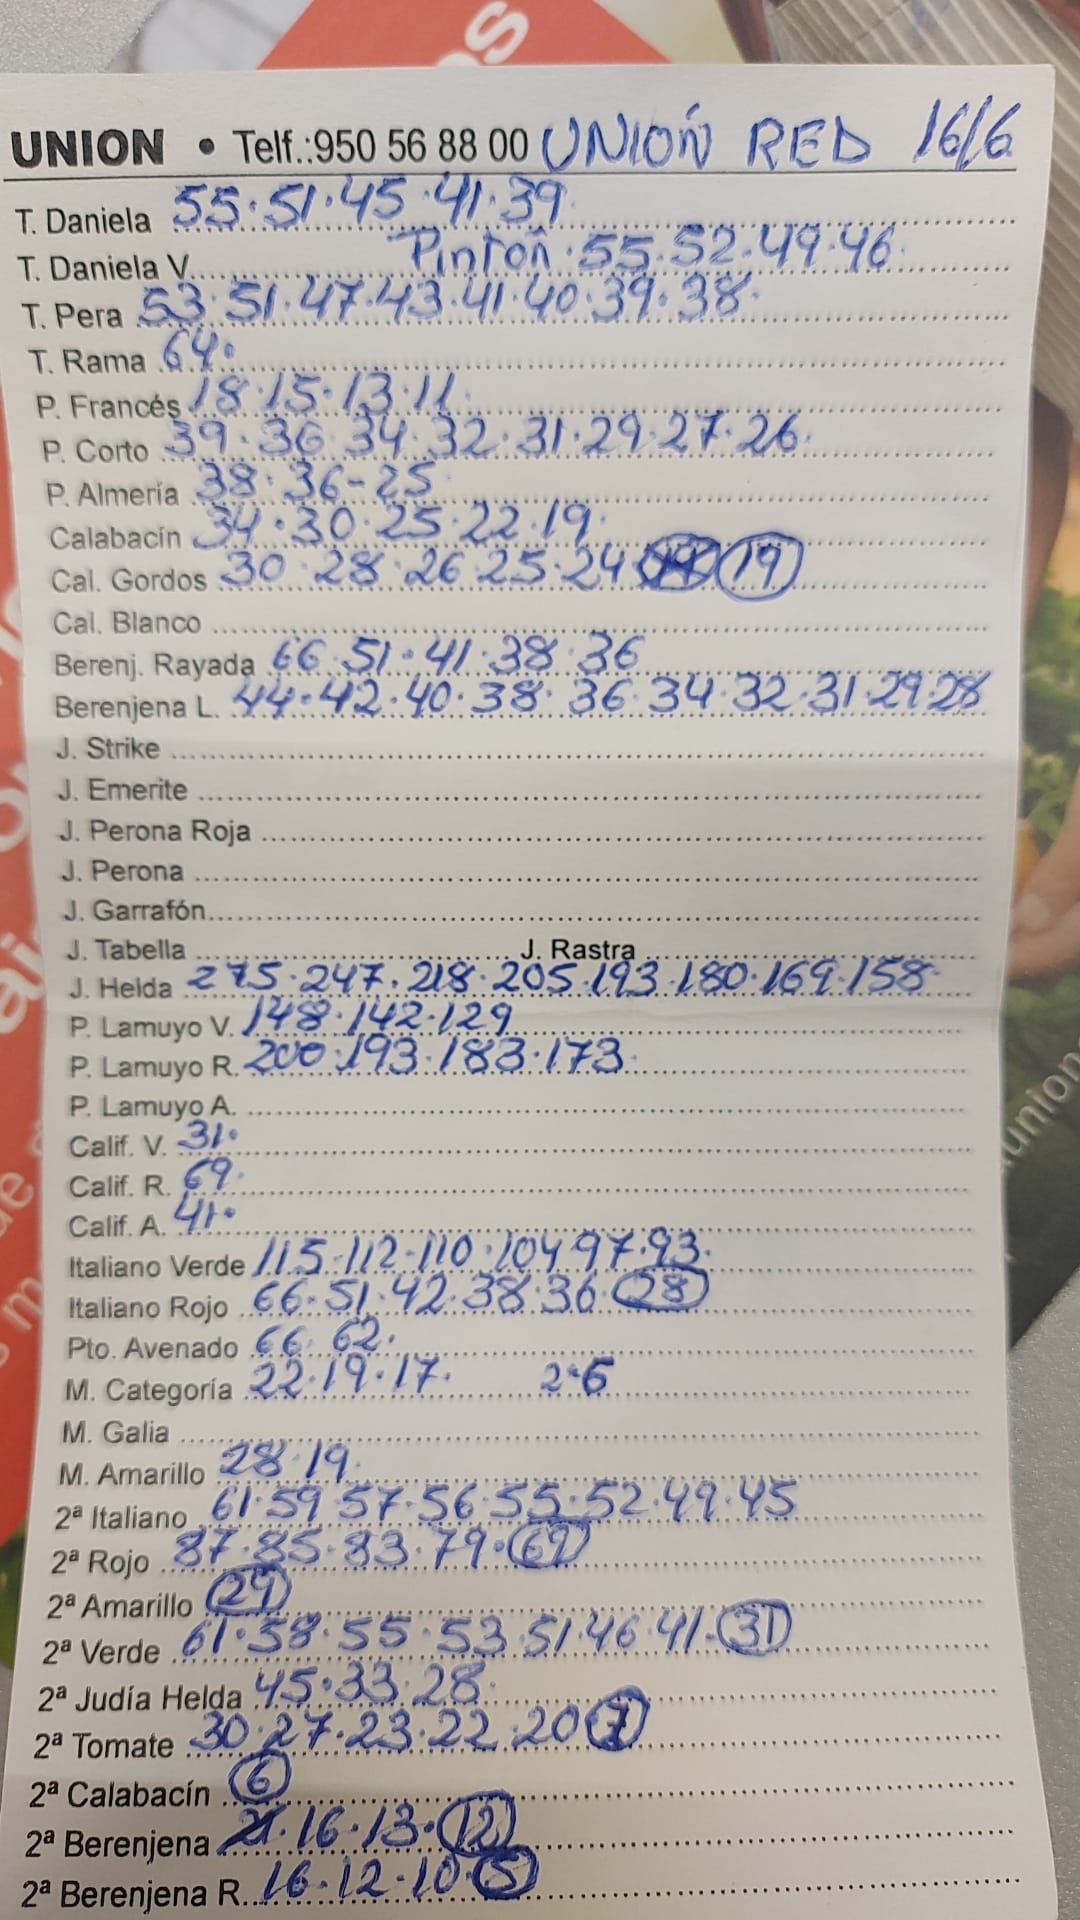 UNION • Telf.:950 56 88 00 UNIÓN RED 16/6
T. Daniela 55·51·45·41·39·
T. Daniela V. Pinton·55·52·49·46·
T. Pera 53·51·47·43·41·40·39·38·
T. Rama 64·
P. Francés 18·15·13·11·
P. Corto 39·36·34·32·31·29·27·26·
P. Almería 38·36-25
Calabacín 34·30·25·22·19·
Cal. Gordos 30·28·26·25·24 19
Cal. Blanco
Berenj. Rayada 66·51·41·38·36
Berenjena L. 44·42·40·38·36·34·32·31·29·28
J. Strike
J. Emerite
J. Perona Roja
J. Perona
J. Garrafón
J. Tabella J. Rastra
J. Helda 275·247·218·205·193·180·169·158·
P. Lamuyo V. 148·142·129
P. Lamuyo R. 200·193·183·173·
P. Lamuyo A.
Calif. V. 31·
Calif. R. 69·
Calif. A. 41·
Italiano Verde 115·112·110·104·97·93·
Italiano Rojo 66·51·42·38·36·28
Pto. Avenado 66·62·
M. Categoría 22·19·17· 2ª6
M. Galia
M. Amarillo 28·19·
2ª Italiano 61·59·57·56·55·52·49·45
2ª Rojo 87·85·83·79·69
2ª Amarillo 29
2ª Verde 61·58·55·53·51·46·41·31
2ª Judía Helda 45·33·28·
2ª Tomate 30·27·23·22·20 7
2ª Calabacín 6
2ª Berenjena 21·16·13·12
2ª Berenjena R. 16·12·10·5
union